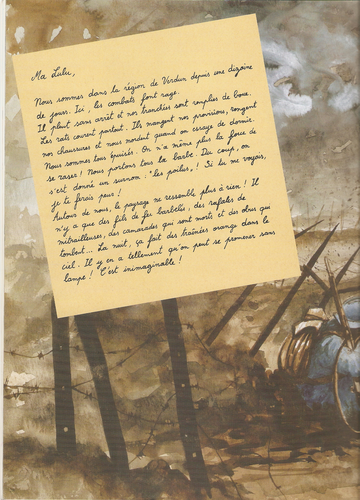 Ma Lulu,
Nous sommes dans la région de Verdun depuis une dizaine
de jours. Ici, les combats font rage.
Il pleut sans arrêt et nos tranchées sont remplies de boue.
Les rats courent partout. Ils mangent nos provisions, rongent
nos chaussures et nous mordent quand on essaye de dormir.
Nous sommes tous épuisés. On n'a même plus la force de
se raser ! Nous portons tous la barbe. Du coup, on
s'est donné un surnom : "les poilus" ! Si tu me voyais,
je te ferais peur !
Autour de nous, le paysage ne ressemble plus à rien ! Il
n'y a que des fils de fer barbelés, des rafales de
mitrailleuses, des camarades qui sont morts et des obus qui
tombent... La nuit, ça fait des traînées orange dans le
ciel. Il y en a tellement qu'on peut se promener sans
lampe ! C'est inimaginable !